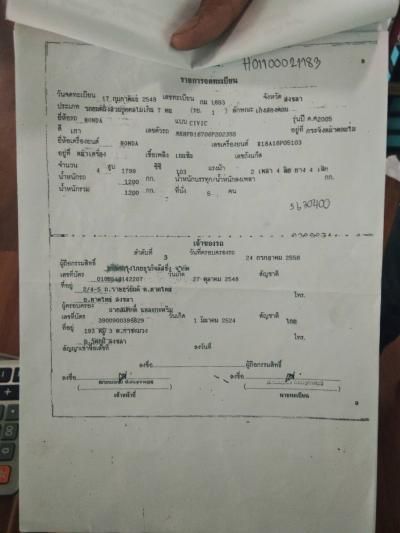 H01100021183
รายการจดทะเบียน
วันจดทะเบียน 17 กุมภาพันธ์ 2549 เลขทะเบียน กม 1893 จังหวัด สงขลา
ประเภท รถยนต์นั่งส่วนบุคคลไม่เกิน 7 คน (รย. 1 ) ลักษณะ เก๋งสองตอน
ยี่ห้อรถ HONDA แบบ CIVIC รุ่นปี ค.ศ2005
สี เทา เลขตัวรถ อยู่ที่
ยี่ห้อเครื่องยนต์ HONDA เลขเครื่องยนต์ R18A16P05103
อยู่ที่ หน้าเครื่อง เชื้อเพลิง เบนซิน เลขถังแก๊ส
จำนวน 4 สูบ 1799 ซีซี 103 แรงม้า 2 เพลา 4 ล้อ ยาง 4 เส้น
น้ำหนักรถ 1200 กก. น้ำหนักบรรทุก/น้ำหนักลงเพลา กก.
น้ำหนักรวม 1200 กก. ที่นั่ง 5 คน
5630400
เจ้าของรถ
ลำดับที่ 3 วันที่ครอบครองรถ 24 กรกฎาคม 2558
ผู้ถือกรรมสิทธิ์
เลขที่บัตร วันเกิด 27 ตุลาคม 2548 สัญชาติ
ที่อยู่ 2/4-5 ถ.ราษฎร์ยินดี ต.หาดใหญ่
อ.หาดใหญ่ สงขลา โทร.
ผู้ครอบครอง
เลขที่บัตร วันเกิด 1 มีนาคม 2524 สัญชาติ ไทย
ที่อยู่ 193 หมู่ 3 ต.ท่าชะมวง
อ.รัตภูมิ สงขลา โทร.
สัญญาเช่าซื้อเลขที่ ลงวันที่
ลงชื่อ ผู้ถือกรรมสิทธิ์
ลงชื่อ ลงชื่อ
เจ้าหน้าที่ นายทะเบียน